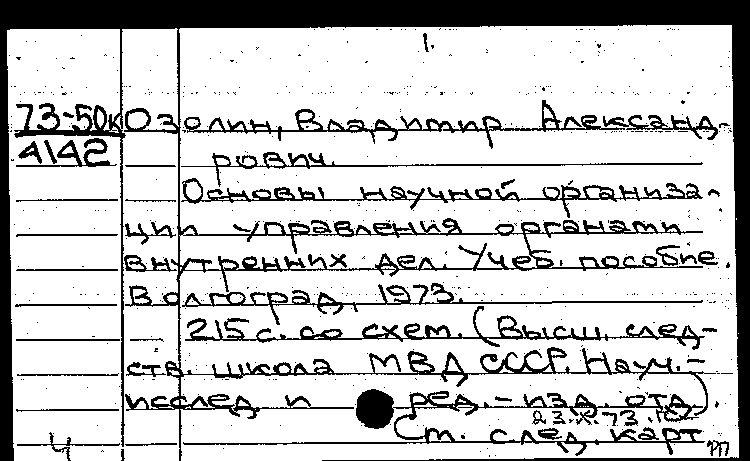 1.
73-50к Озолин, Владимир Александ-
4142 рович.
Основы научной организа-
ции управления органами
внутренних дел. Учеб. пособие.
Волгоград, 1973.
215 с. со схем. (Высш. след-
ств. школа МВД СССР. Науч.-
исслед. и ред.-изд. отд.).
23.X.73.
См. след. карт
Ч